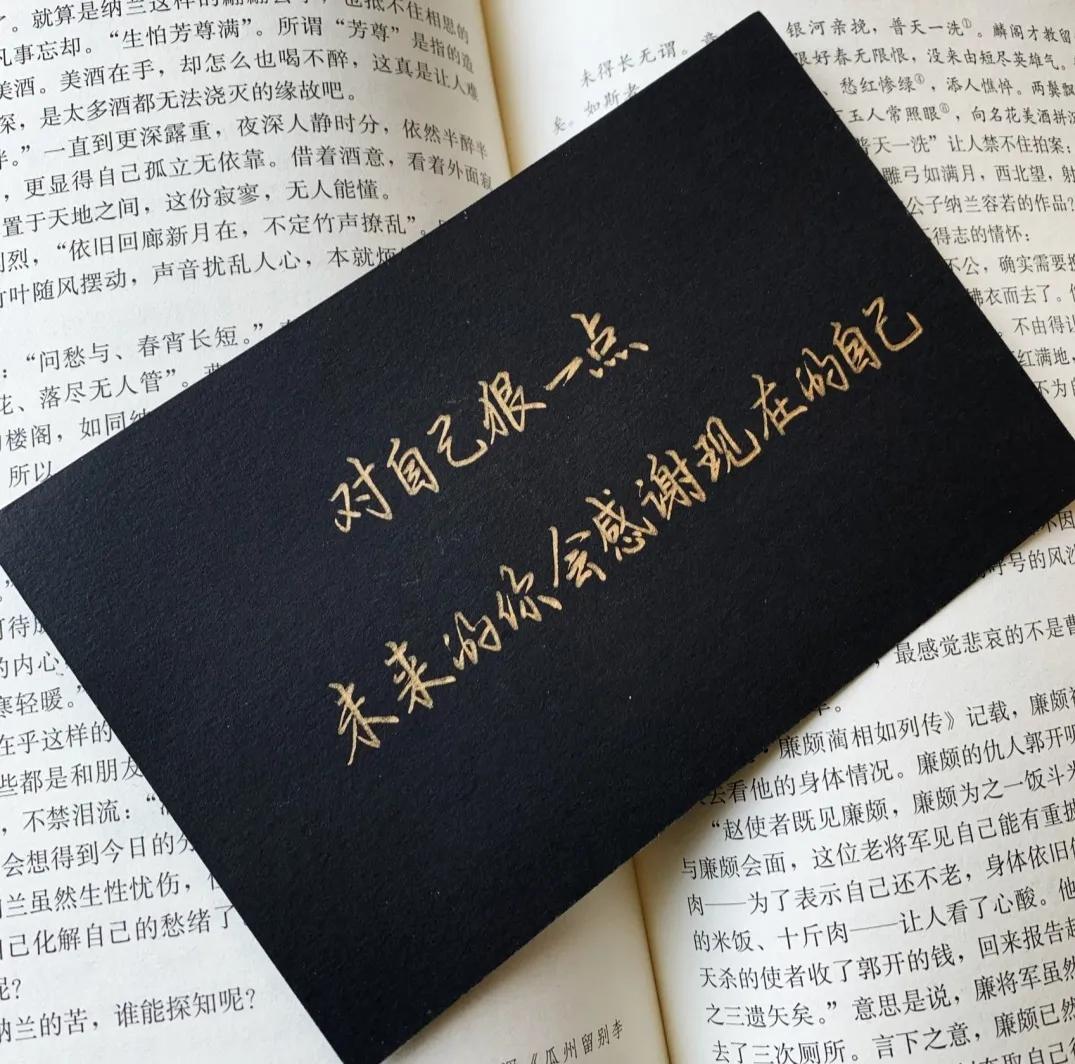 。就算是纳兰这样的翩翩公子，也抵不住相思的
凡事忘却。“生怕芳尊满”。所谓“芳尊”是指的造
美酒。美酒在手，却怎么也喝不醉，这真是让人难
深，是太多酒都无法浇灭的缘故吧。
半。”一直到更深露重，夜深人静时分，依然半醉半
，更显得自己孤立无依靠。借着酒意，看着外面寂
置于天地之间，这份寂寥，无人能懂。
烈，“依旧回廊新月在，不定竹声撩乱”。
竹叶随风摆动，声音扰乱人心，本就烦
：“问愁与、春宵长短。”
花、落尽无人管”。
楼阁，如同纳
所以
对自己狠一点
未来的你会感谢现在的自己
可待
的内心
寒轻暖。”
在乎这样的
些都是和朋友
，不禁泪流：“
会想得到今日的
兰虽然生性忧伤，
己化解自己的愁绪了
呢？
纳兰的苦，谁能探知呢？
未得长无谓。
矣。如斯者
银河亲挽，普天一洗①。麟阁才教留
恨好春无限恨，没来由短尽英雄气。
愁红惨绿④，添人憔悴。两鬓飘
玉人常照眼⑥，向名花美酒拼沉
普天一洗”让人禁不住拍案：
雕弓如满月，西北望，射
公子纳兰容若的作品？
得志的情怀：
不公，确实需要挽
拂衣而去了。
不由得让
红满地，
不为的
不因
号的风沙
，最感觉悲哀的不是曹
廉颇蔺相如列传》记载，廉颇被
去看他的身体情况。廉颇的仇人郭开听
“赵使者既见廉颇，廉颇为之一饭斗米
与廉颇会面，这位老将军见自己能有重披
肉——为了表示自己还不老，身体依旧
的米饭、十斤肉——让人看了心酸。他
天杀的使者收了郭开的钱，回来报告赵
之三遗矢矣。”意思是说，廉将军虽然
去了三次厕所。言下之意，廉颇已然
《瓜州留别李